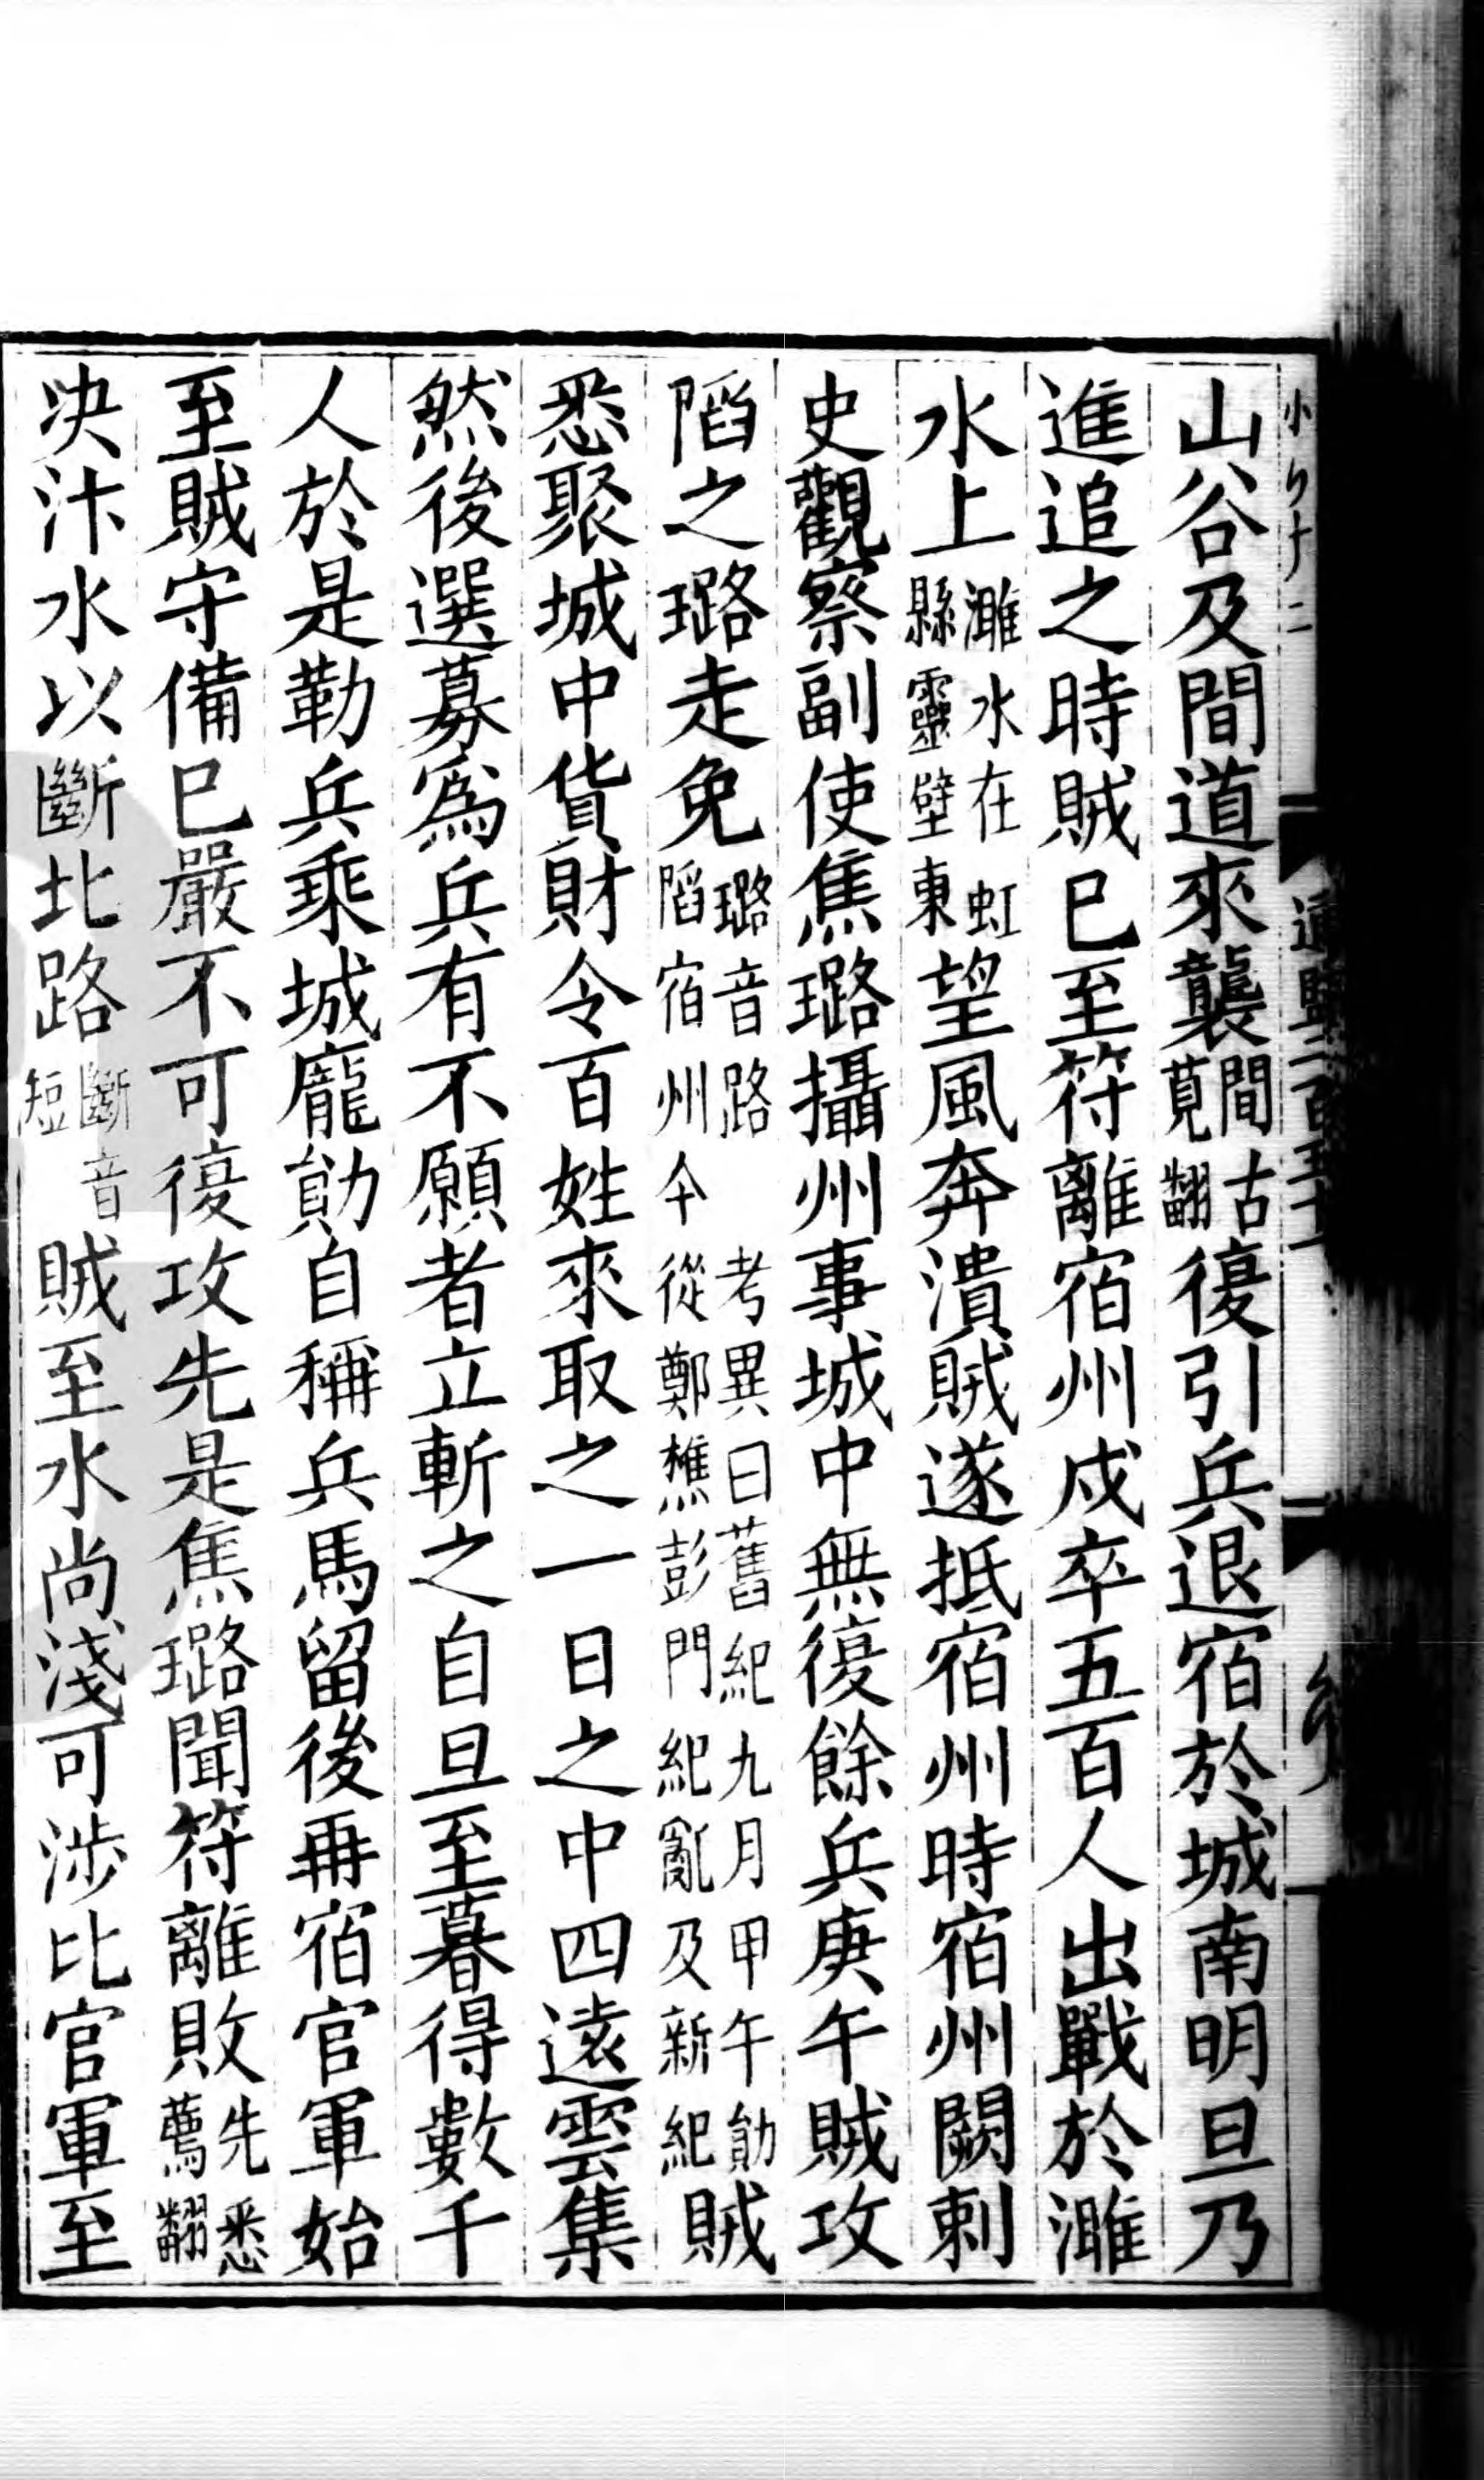 山谷及間道來襲間古莧翻復引兵退宿於城南明旦乃
進追之時賊已至符離宿州戍卒五百人出戰於濉
水上濉水在虹縣靈壁東望風奔潰賊遂抵宿州時宿州闕刺
史觀察副使焦璐攝州事城中無復餘兵庚午賊攻
陷之璐走免璐音路考異曰舊紀九月甲午勛陷宿州今從鄭樵彭門紀亂及新紀賊
悉聚城中貨財令百姓來取之一日之中四遠雲集
然後選募爲兵有不願者立斬之自旦至暮得數千
人於是勒兵乘城龐勛自稱兵馬留後再宿官軍始
至賊守備已嚴不可復攻先是焦璐聞符離敗先悉薦翻
决汴水以斷北路斷音短賊至水尚淺可涉比官軍至